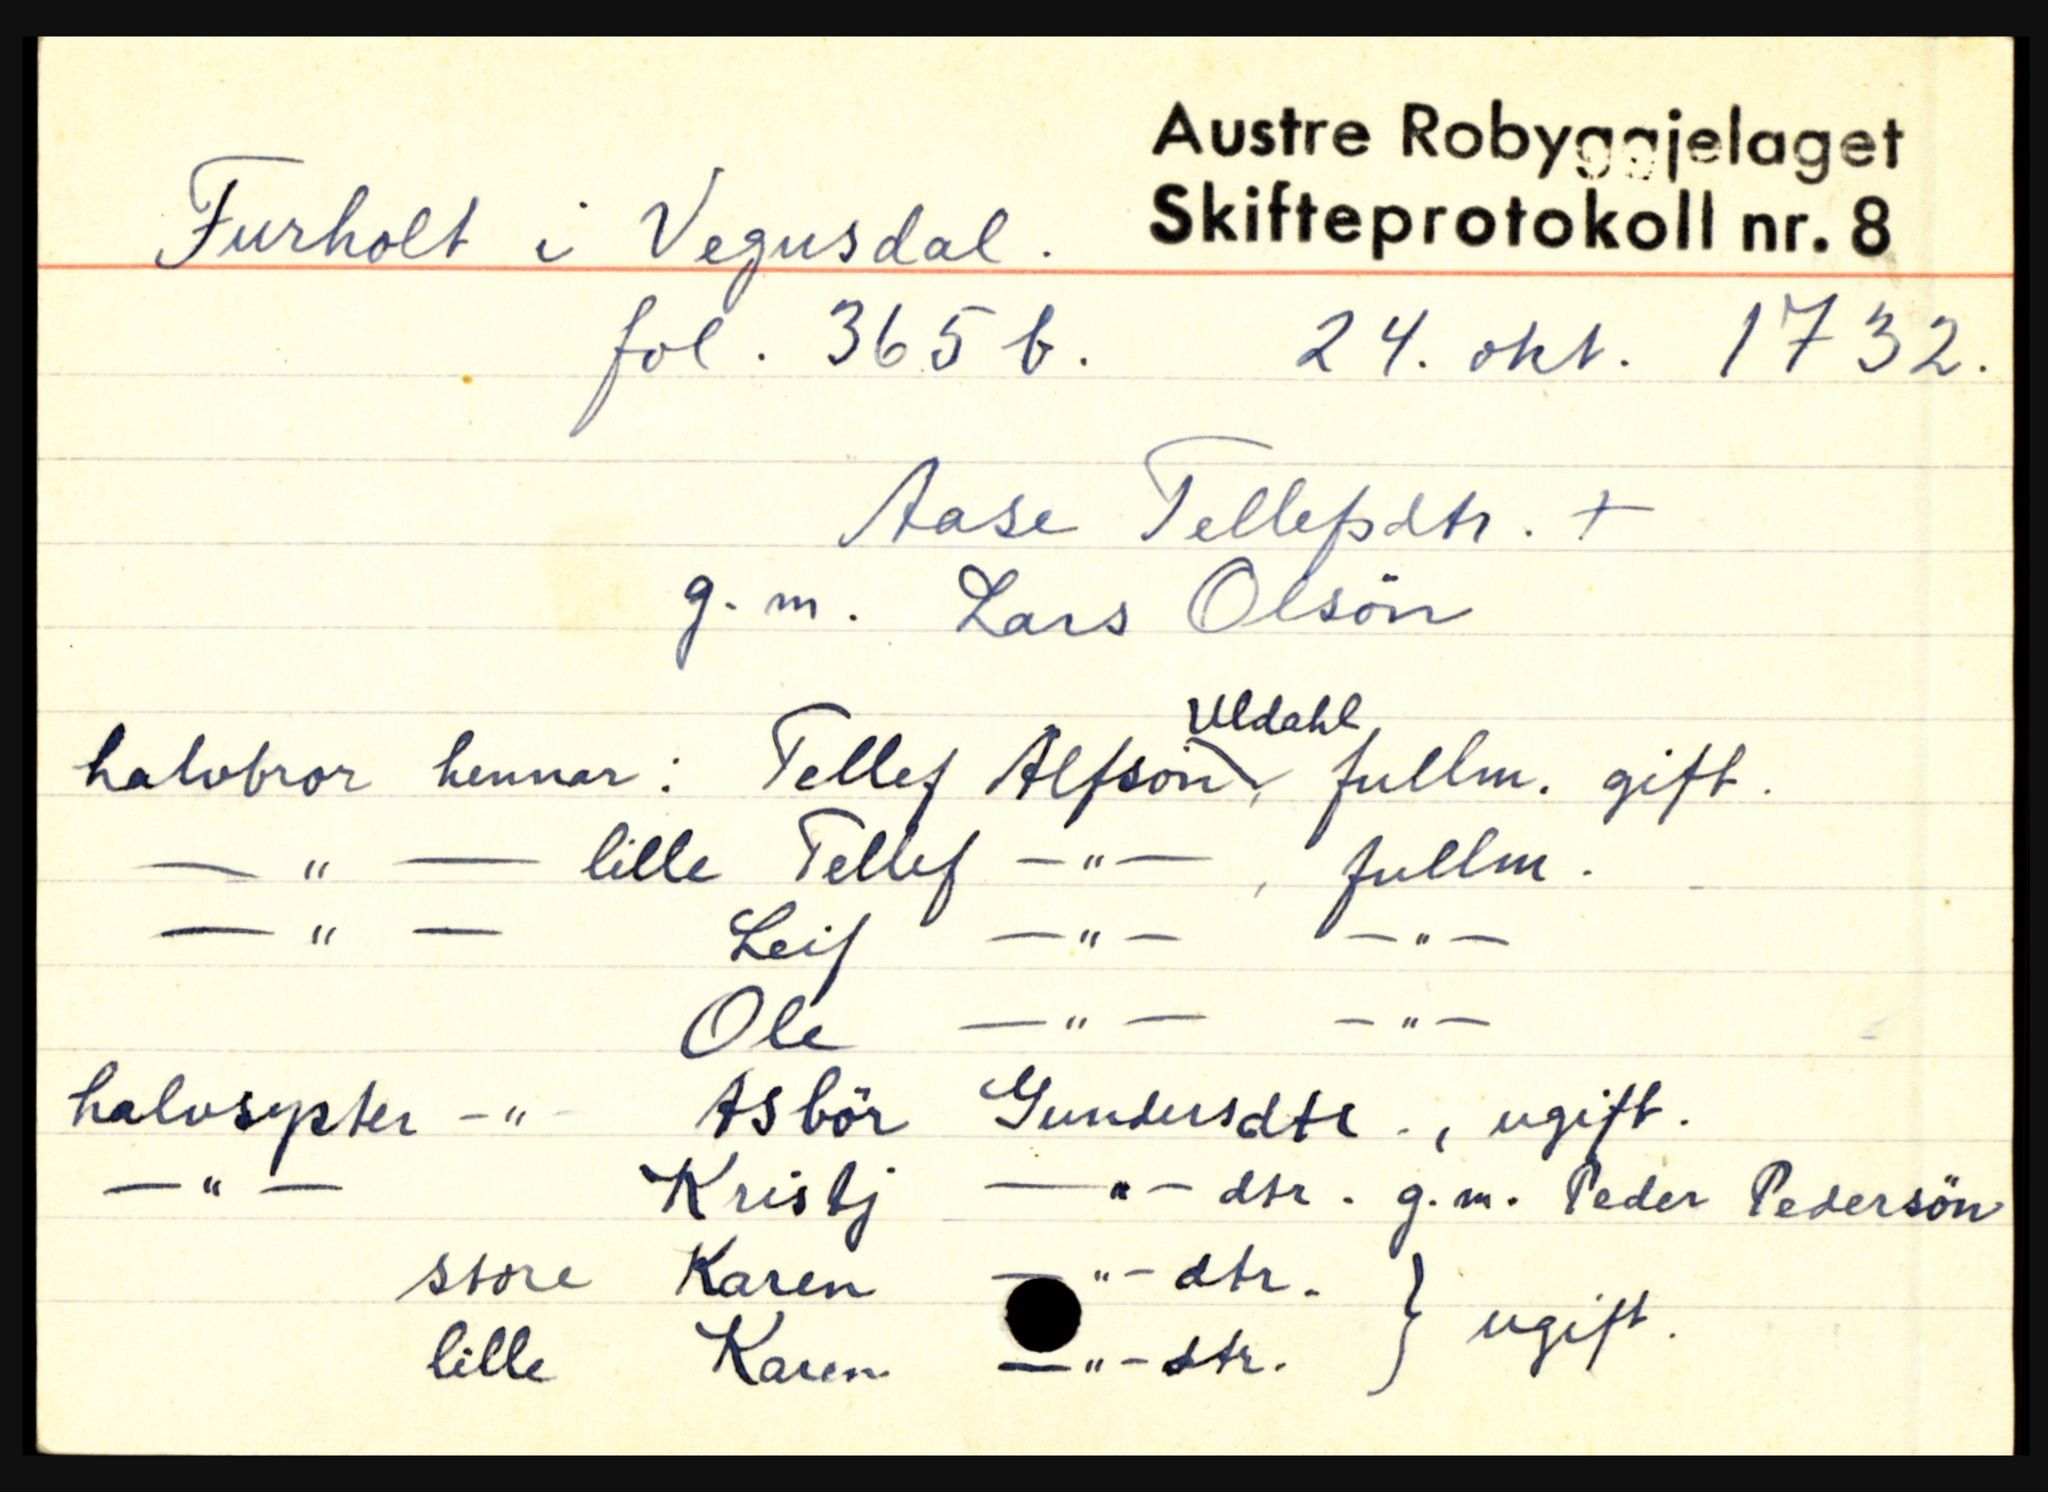 Austre Robyggjelaget
Skifteprotokoll nr. 8
Furholt i Vegusdal.
fol. 365 b. 24. okt. 1732.
Aase Tellefsdtr. +
g. m. Lars Olsön
Uldahl
halvbror hennar: Tellef Alfsön, fullm. gift.
— " — lille Tellef — " —, fullm.
— " — Leif — " — — " —
Ole — " — — " —
halvsyster — " — Asbör Gundersdtr., ugift.
— " — Kristj — " — dtr. g. m. Peder Pedersön
store Karen — " — dtr. } ugift.
lille Karen — " — dtr.